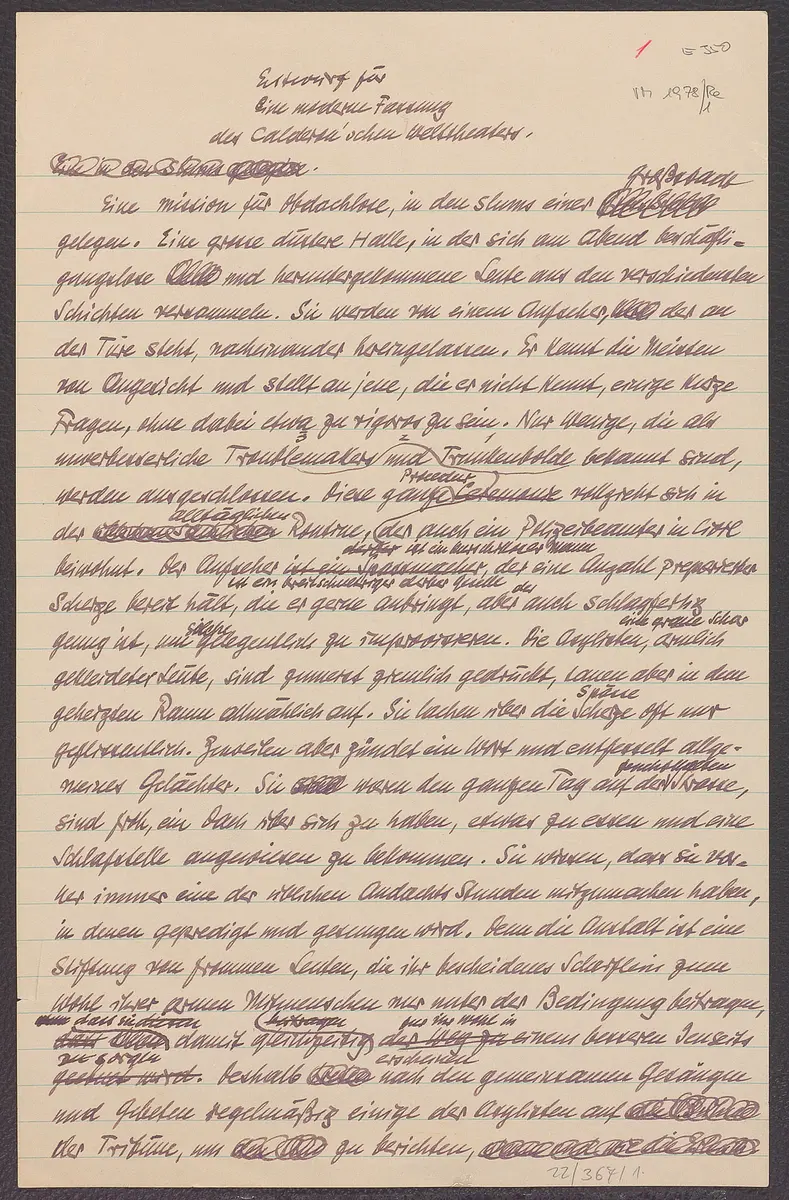 1 E 350
VM 1978/Re
1
Entwurf für
Eine moderne Fassung
des Calderon'schen Welttheaters.
Eine in den Slums gelegene.
Großstadt
Eine Mission für Obdachlose, in den Slums einer
gelegen. Eine grosse düstere Halle, in der sich am Abend beschäfti-
gungslose und heruntergekommene Leute aus den verschiedensten
Schichten versammeln. Sie werden von einem Aufseher, der an
der Türe steht, nacheinander hereingelassen. Er kennt die Meisten
von Angesicht und stellt an jene, die er nicht kennt, einige kurze
Fragen, ohne dabei etwa zu rigoros zu sein. Nur Wenige, die als
3 2
unverbesserliche Troublemakers und Trunkenbolde bekannt sind,
Procedur
werden ausgeschlossen. Diese ganze Ceremonie vollzieht sich in
alltäglichen
der Routine, der auch ein Polizeibeamter in Civil
dieser ist ein
beiwohnt. Der Aufseher ist ein Spassmacher, der eine Anzahl präparierter
ist ein breitschultriger derber Geselle der
Scherze bereit hält, die er gerne anbringt, aber auch schlagfertig
solche eine graue Schar
genug ist, um gelegentlich zu improvisieren. Die Asylisten, ärmlich
gekleideter Leute, sind zumeist ziemlich gedrückt, tauen aber in dem
Spässe
geheizten Raum allmählich auf. Sie lachen über die Scherze oft nur
geflissentlich. Zuweilen aber zündet ein Wort und entfesselt allge-
meines Gelächter. Sie waren den ganzen Tag auf der Strasse,
sind froh, ein Dach über sich zu haben, etwas zu essen und eine
Schlafstelle angewiesen zu bekommen. Sie wissen, dass sie vor-
her immer eine der üblichen Andachts Stunden mitzumachen haben,
in denen gepredigt und gesungen wird. Denn die Anstalt ist eine
Stiftung von frommen Leuten, die ihr bescheidenes Scherflein zum
Wohl ihrer armen Mitmenschen nur unter der Bedingung beitragen,
dass sie beitragen für ihr Wohl in
dass damit gleichzeitig der Weg zu einem besseren Jenseits
zu sorgen erscheinen
geebnet wird. Deshalb nach den gemeinsamen Gesängen
und Gebeten regelmäßig einige der Asylisten auf
der Tribüne, um zu berichten,
22/367/1.